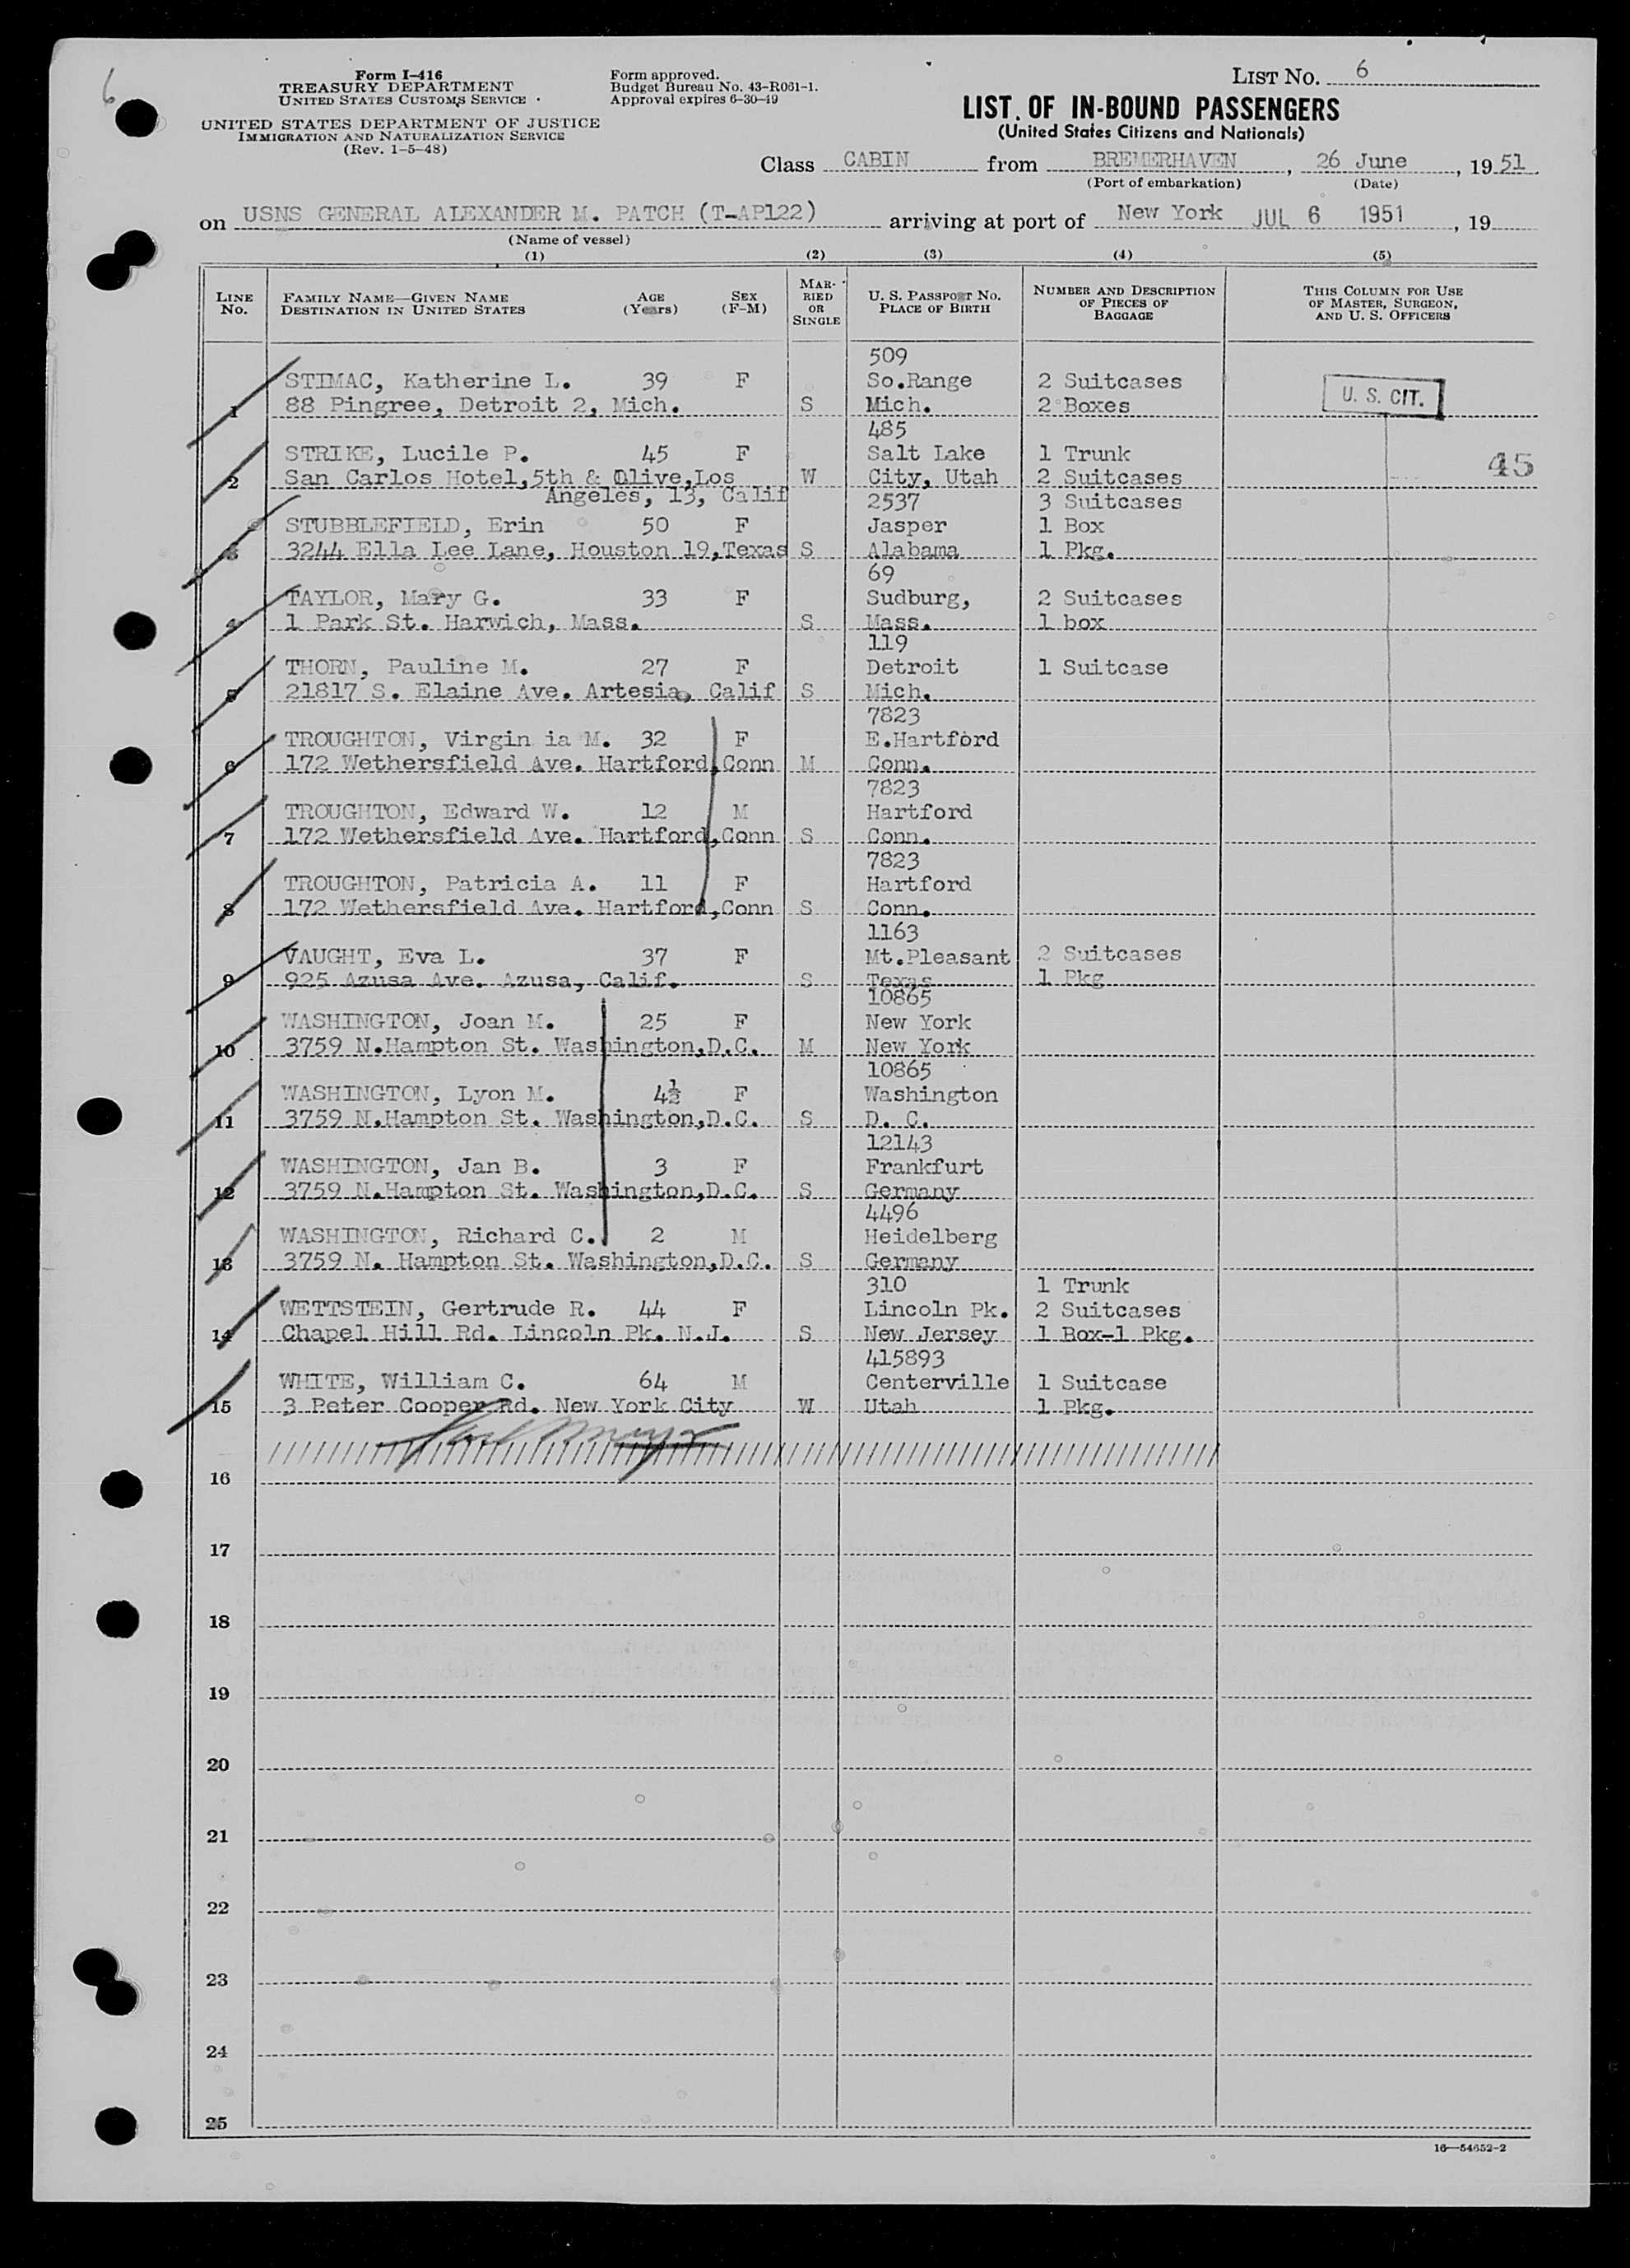 6
Form I-416
TREASURY DEPARTMENT
UNITED STATES CUSTOMS SERVICE
UNITED STATES DEPARTMENT OF JUSTICE
IMMIGRATION AND NATURALIZATION SERVICE
(Rev. 1-5-48)
Form approved.
Budget Bureau No. 43-R061-1.
Approval expires 6-30-49
LIST NO. 6
LIST OF IN-BOUND PASSENGERS
(United States Citizens and Nationals)
Class CABIN from BREMERHAVEN, 26 June, 1951
(Port of embarkation) (Date)
on USNS GENERAL ALEXANDER M. PATCH (T-AP122) arriving at port of New York JUL 6 1951, 19
(Name of vessel)
(1) (2) (3) (4) (5)
LINE NO. FAMILY NAME—GIVEN NAME DESTINATION IN UNITED STATES AGE (Years) SEX (F-M) MARRIED OR SINGLE U. S. PASSPORT NO. PLACE OF BIRTH NUMBER AND DESCRIPTION OF PIECES OF BAGGAGE THIS COLUMN FOR USE OF MASTER, SURGEON, AND U. S. OFFICERS
509
STIMAC, Katherine L. 39 F So.Range 2 Suitcases U. S. CIT.
1 88 Pingree, Detroit 2, Mich. S Mich. 2 Boxes
485
STRIKE, Lucile P. 45 F Salt Lake 1 Trunk 45
2 San Carlos Hotel,5th & Olive,Los W City, Utah 2 Suitcases
Angeles, 13, Calif 2537 3 Suitcases
STUBBLEFIELD, Erin 50 F Jasper 1 Box
3 3244 Ella Lee Lane, Houston 19,Texas S Alabama 1 Pkg.
69
TAYLOR, Mary G. 33 F Sudburg, 2 Suitcases
4 1 Park St. Harwich, Mass. S Mass. 1 box
119
THORN, Pauline M. 27 F Detroit 1 Suitcase
5 21817 S. Elaine Ave. Artesia, Calif S Mich.
7823
TROUGHTON, Virgin ia M. 32 F E.Hartford
6 172 Wethersfield Ave. Hartford,Conn M Conn.
7823
TROUGHTON, Edward W. 12 M Hartford
7 172 Wethersfield Ave. Hartford,Conn S Conn.
7823
TROUGHTON, Patricia A. 11 F Hartford
8 172 Wethersfield Ave. Hartford,Conn S Conn.
1163
VAUGHT, Eva L. 37 F Mt.Pleasant 2 Suitcases
9 925 Azusa Ave. Azusa, Calif. S Texas 1 Pkg
10865
WASHINGTON, Joan M. 25 F New York
10 3759 N.Hampton St. Washington,D.C. M New York
10865
WASHINGTON, Lyon M. 4½ F Washington
11 3759 N.Hampton St. Washington,D.C. S D. C.
12143
WASHINGTON, Jan B. 3 F Frankfurt
12 3759 N.Hampton St. Washington,D.C. S Germany
4496
WASHINGTON, Richard C. 2 M Heidelberg
13 3759 N. Hampton St. Washington,D.C. S Germany
310 1 Trunk
WETTSTEIN, Gertrude R. 44 F Lincoln Pk. 2 Suitcases
14 Chapel Hill Rd. Lincoln Pk. N.J. S New Jersey 1 Box-1 Pkg.
415893
WHITE, William C. 64 M Centerville 1 Suitcase
15 3 Peter Cooper Rd. New York City W Utah 1 Pkg.
16
17
18
19
20
21
22
23
24
25
16—54652-2